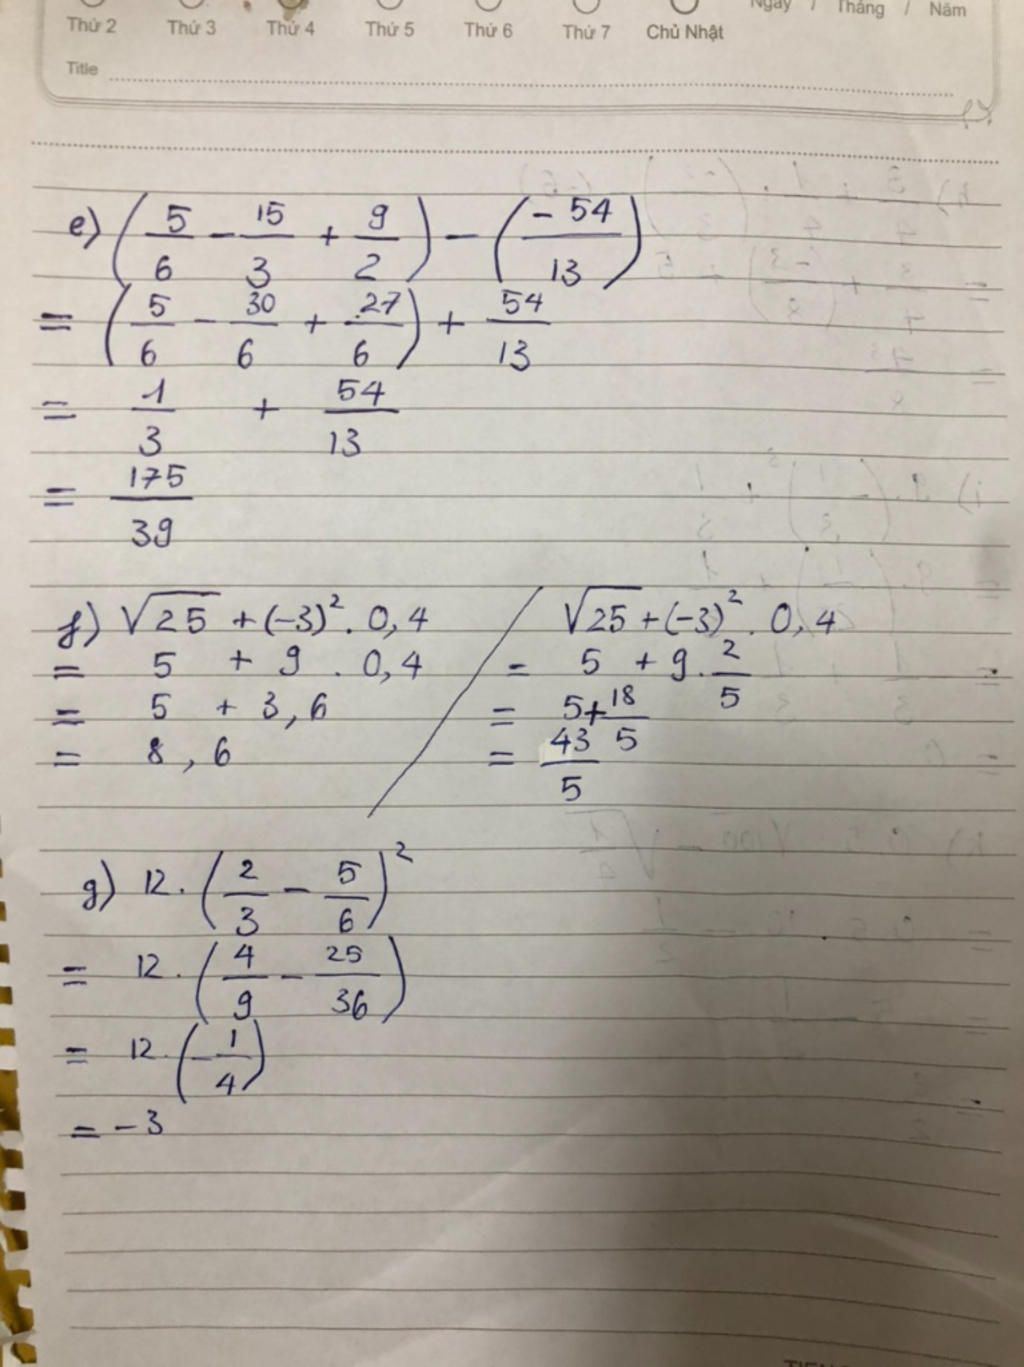 Thứ 2 Thứ 3 Thứ 4 Thứ 5 Thứ 6 Thứ 7 Chủ Nhật Ngày / Tháng / Năm
Title
e) (5/6 - 15/3 + 9/2) - (-54/13)
= (5/6 - 30/6 + 27/6) + 54/13
= 1/3 + 54/13
= 175/39
f) √25 + (-3)². 0,4
= 5 + 9 . 0,4
= 5 + 3,6
= 8,6
√25 + (-3)². 0,4
= 5 + 9 . 2/5
= 5 + 18/5
= 43/5
g) 12. (2/3 - 5/6)²
= 12. (4/9 - 25/36)
= 12. (-1/4)
= -3